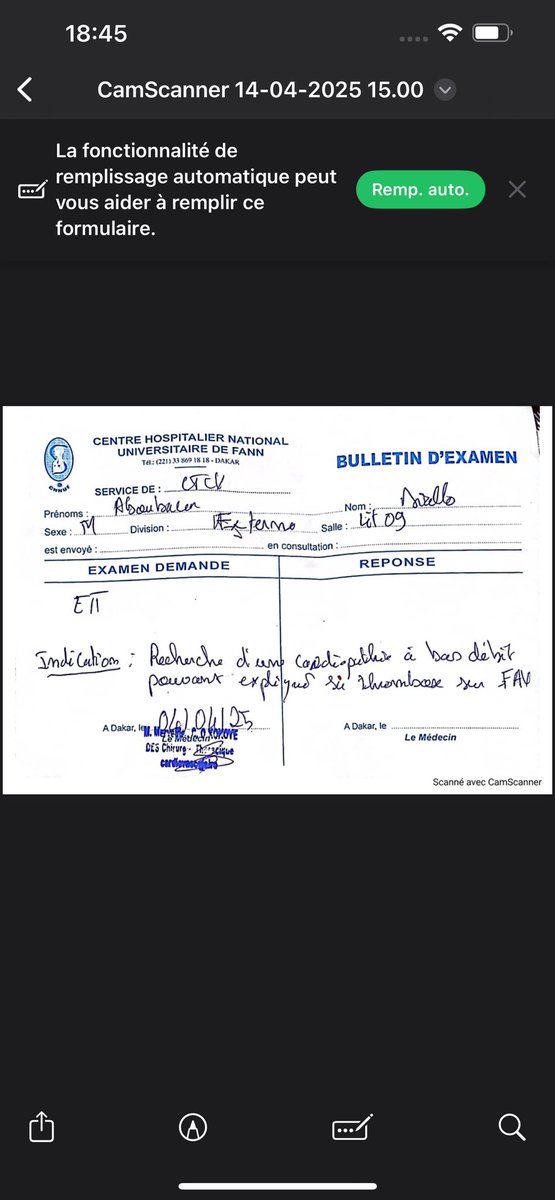 18:45
CamScanner 14-04-2025 15.00
La fonctionnalité de
remplissage automatique peut
vous aider à remplir ce
formulaire.
Remp. auto.
CENTRE HOSPITALIER NATIONAL
UNIVERSITAIRE DE FANN
Tél.: (221) 33 869 18 18 - DAKAR
BULLETIN D'EXAMEN
SERVICE DE : CTCV
Prénoms : Aboubacar
Nom : Diallo
Sexe : M Division : Externe Salle : Lit 09
est envoyé : en consultation :
EXAMEN DEMANDE
REPONSE
ETT
Indication : Recherche d'une cardiopathie à bas débit
pouvant expliquer sa thrombose sur FAV
A Dakar, le 04/04/25
A Dakar, le
Le Médecin
DES Chirurg. Thoracique
cardiovasculaire
Le Médecin
Scanné avec CamScanner